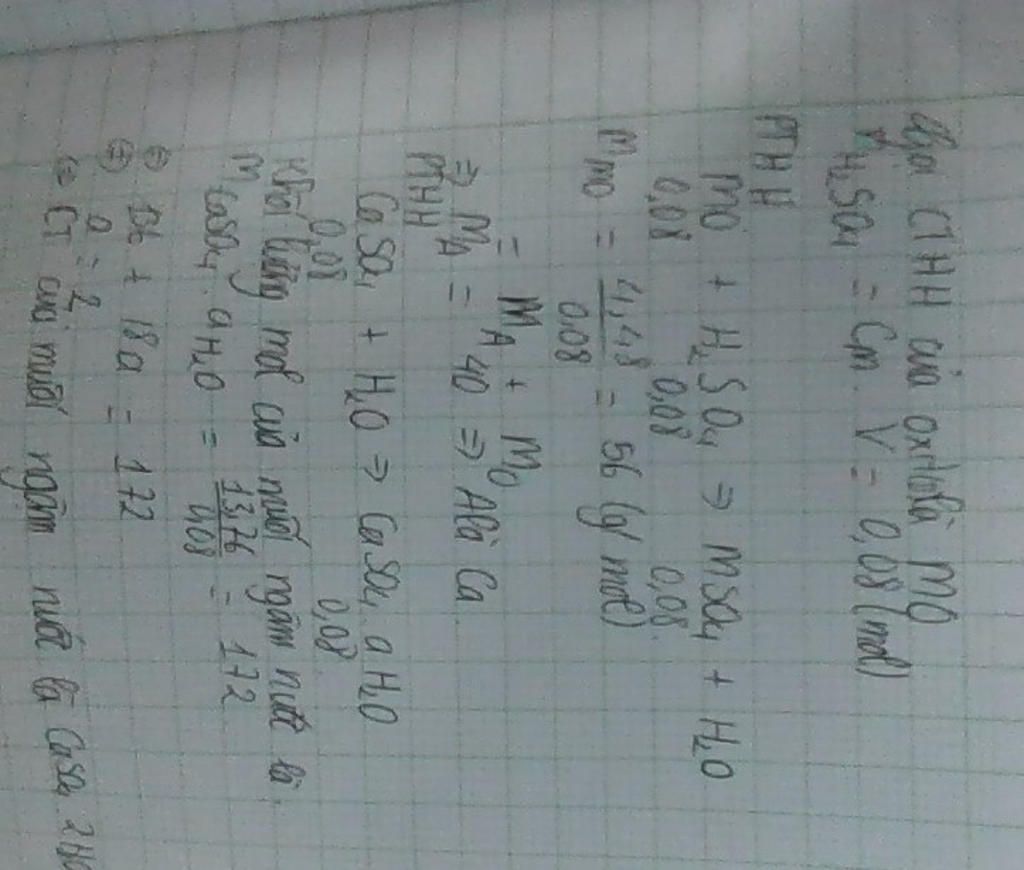 Gọi CTHH của oxit là MO
nH2SO4 = Cm. V = 0,08 (mol)
PTHH
MO + H2SO4 => MSO4 + H2O
0,08 0,08 0,08
MMO = 4,48/0,08 = 56 (g/mol)
= MA + MO
=> MA = 40 => A là Ca
PTHH
CaSO4 + H2O => CaSO4. aH2O
0,08 0,08
Khối lượng mol của muối ngậm nước là
MCaSO4. aH2O = 13,76/0,08 = 172
<=> 136 + 18a = 172
<=> a = 2
=> CT của muối ngậm nước là CaSO4. 2H2O